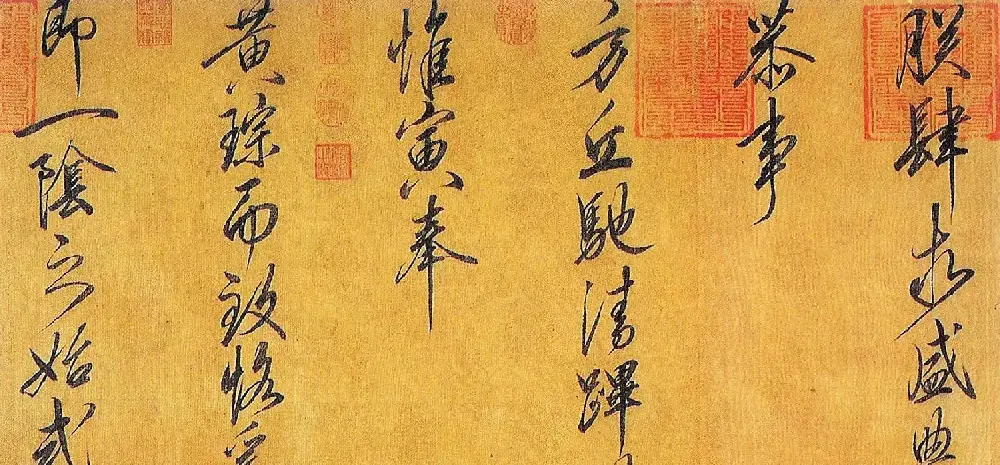 朕肆求盛典
恭事
方丘馳清蹕
惟寅奉
黄琮而致恪爰
即一陰之始式